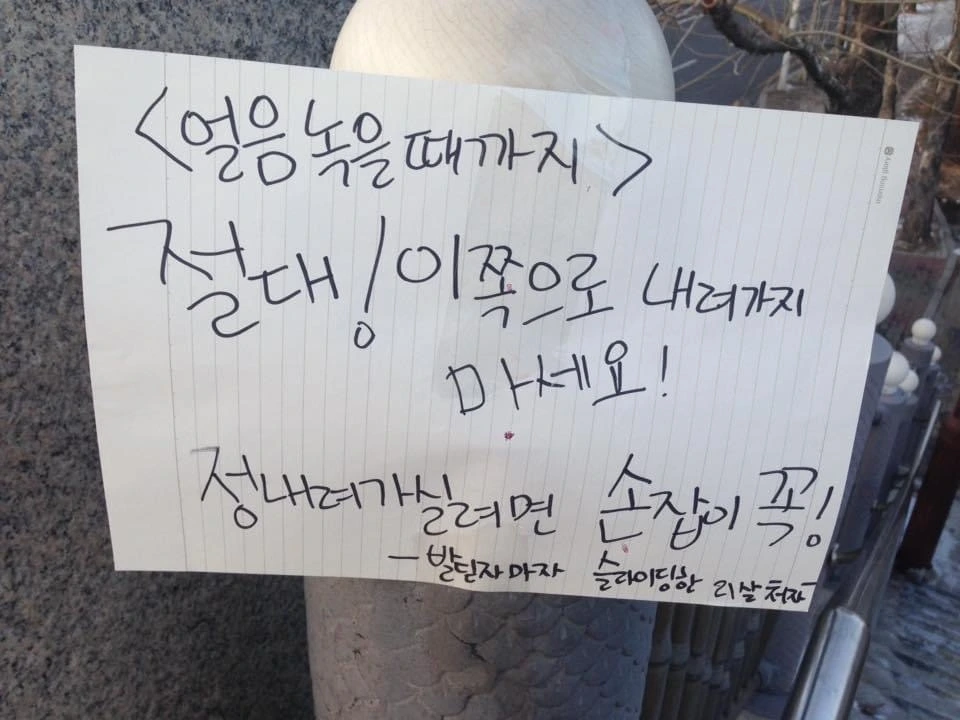 <얼음 녹을때까지>
절대! 이쪽으로 내려가지
마세요!
정내려가실려면 손잡이 꼭!
- 발딛자마자 슬라이딩한 21살처자-